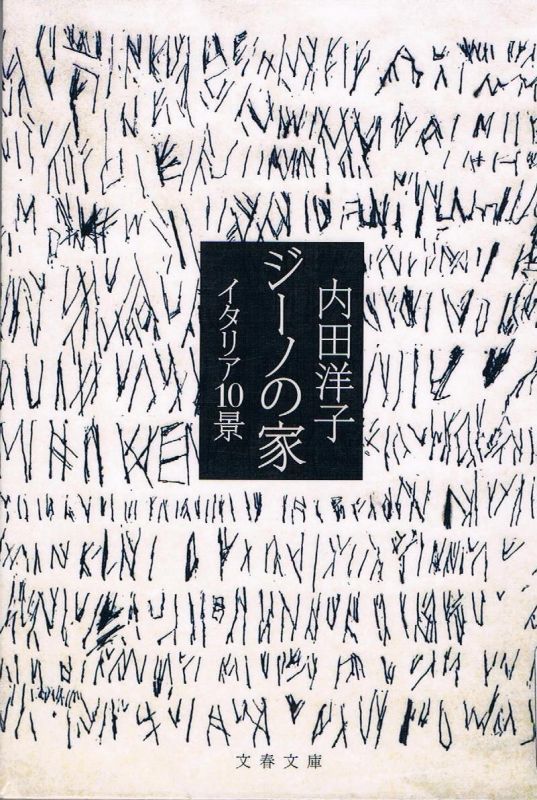 内田洋子
ジーノの家
イタリア10景
文春文庫